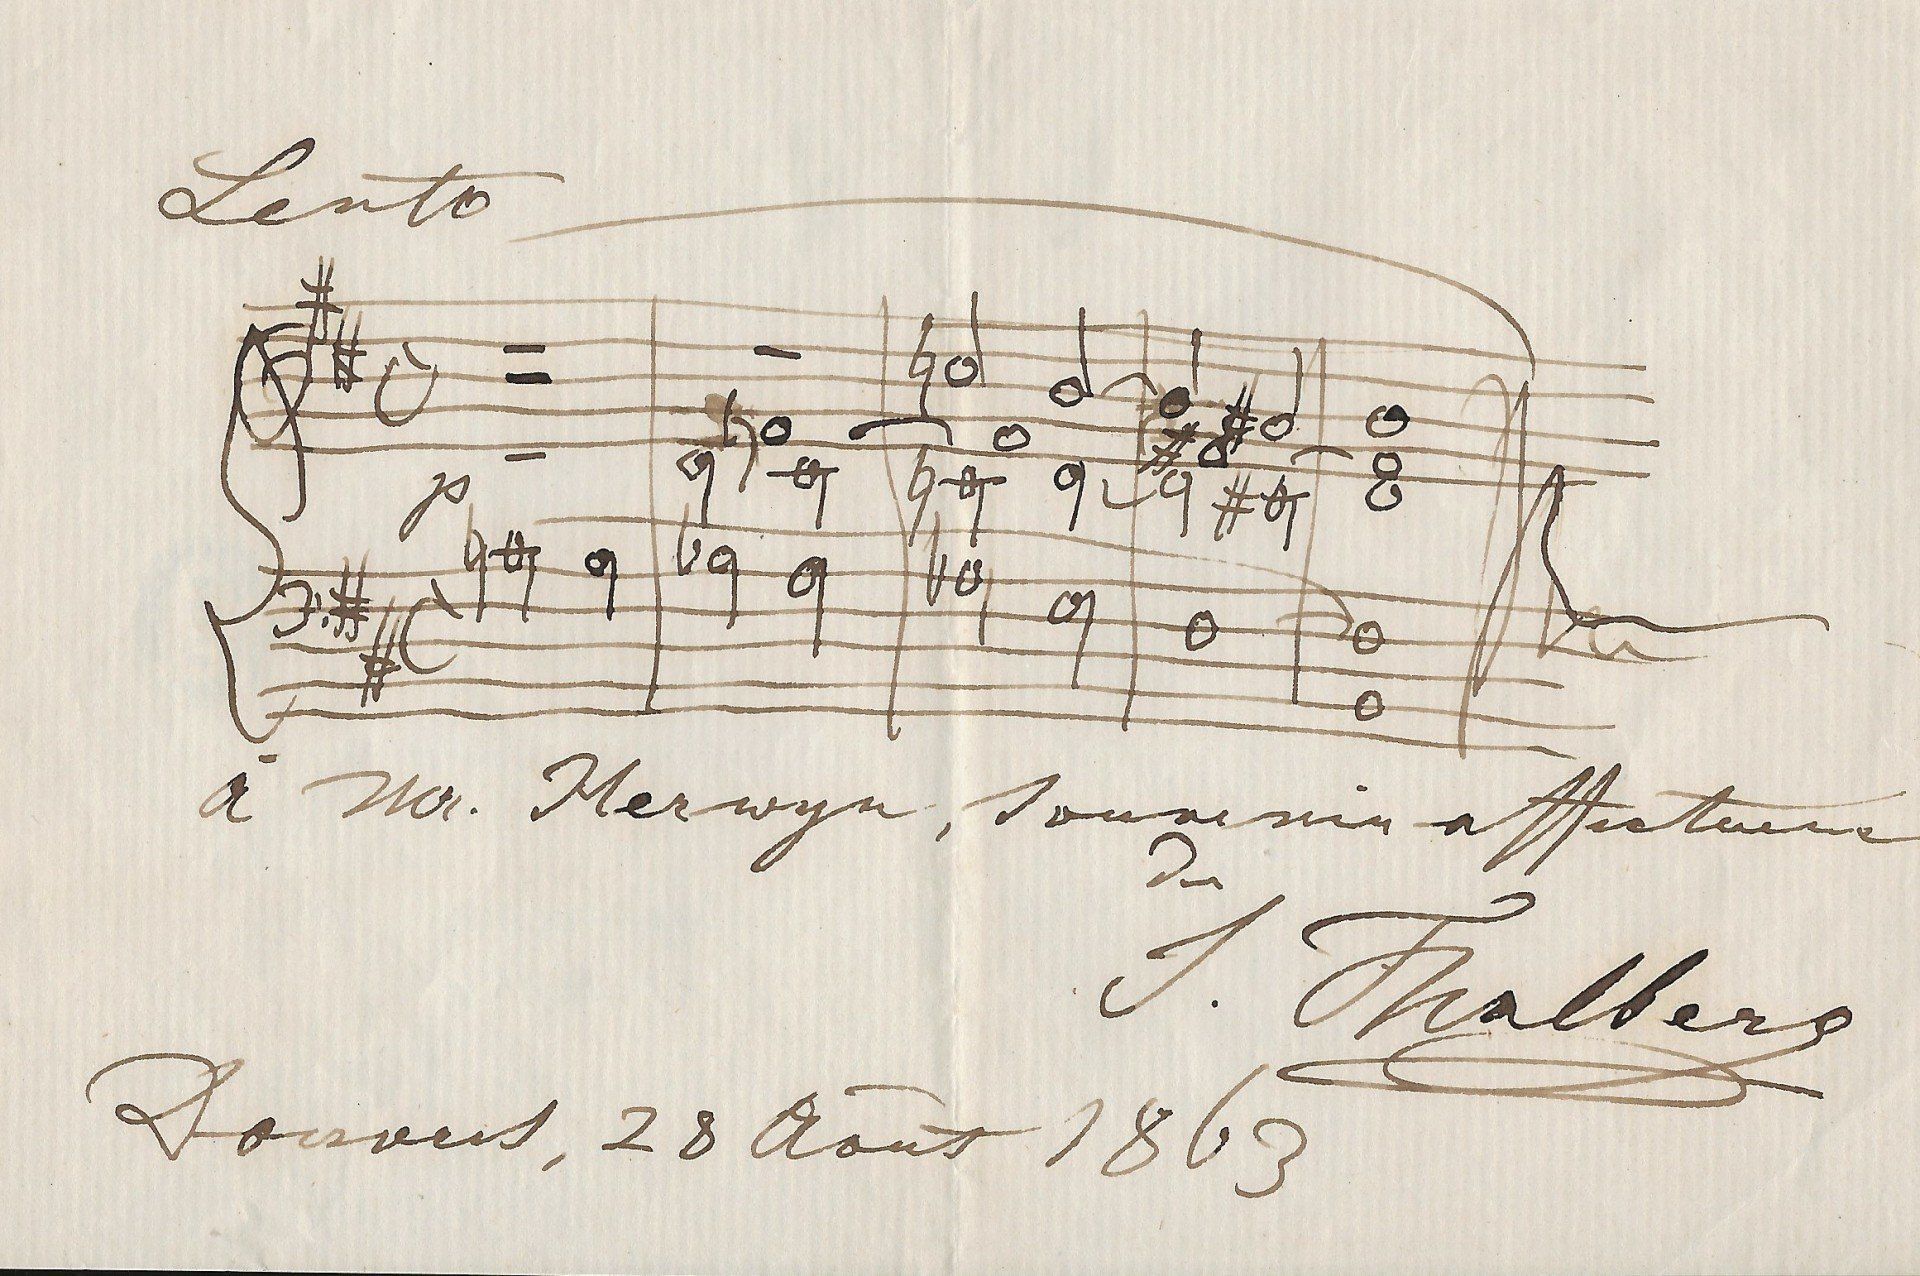 Lento
p
à Mr. Merwyn, souvenir affectueux
de
S. Thalberg
28 Août 1863